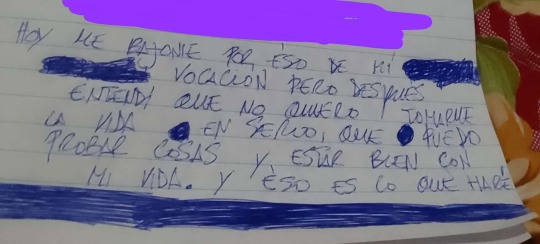 HOY ME BAJONIE POR ÉSO DE MI
VOCACIÓN PERO DESPUES
ENTENDÍ QUE NO QUIERO TOMARME
LA VIDA EN SERIO, QUE PUEDO
PROBAR COSAS Y ESTAR BIEN CON
MI VIDA. Y ÉSO ES LO QUE HARÉ